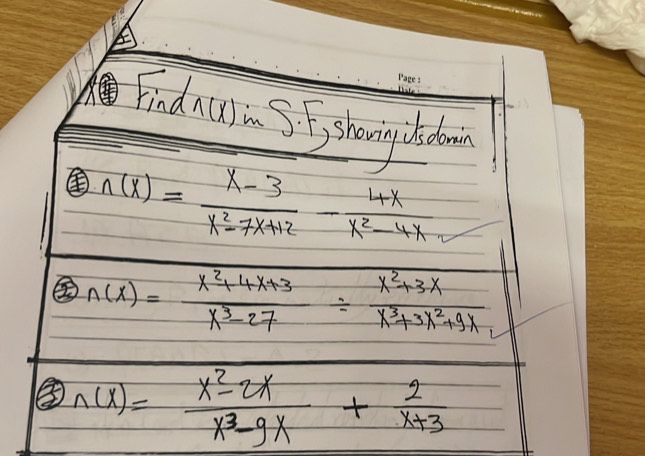 Page :
Date :
Find n(x) in S.F, showing its domain
① n(x) = (x-3)/(x²-7x+12) - 4x/(x²-4x)
② n(x) = (x²+4x+3)/(x³-27) ÷ (x²+3x)/(x³+3x²+9x)
③ n(x) = (x²-2x)/(x³-9x) + 2/(x+3)